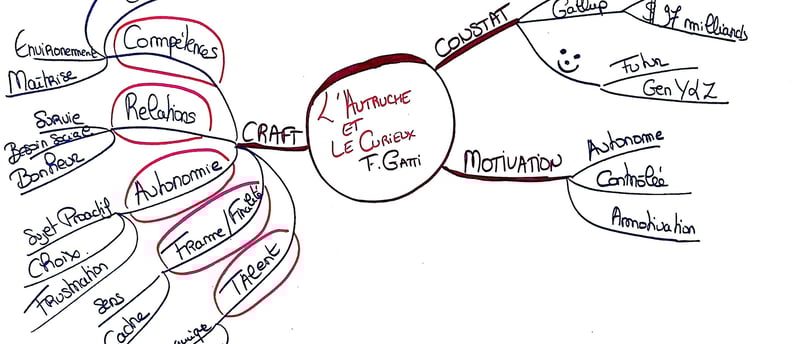 L'AUTRUCHE
ET
LE CURIEUX
F. GATTI
CONSTAT
Gallup
$ 97 milliards
Futur
Gen Y & Z
MOTIVATION
Autonome
Contrôlée
Amotivation
CRAFT
Compétences
Environement
Maîtrise
Relations
Survie
Besoin Social
Bonheur
Autonomie
Sujet Proactif
Choix
Frustration
Frame/Finalité
Sens
Cadre
TAlent